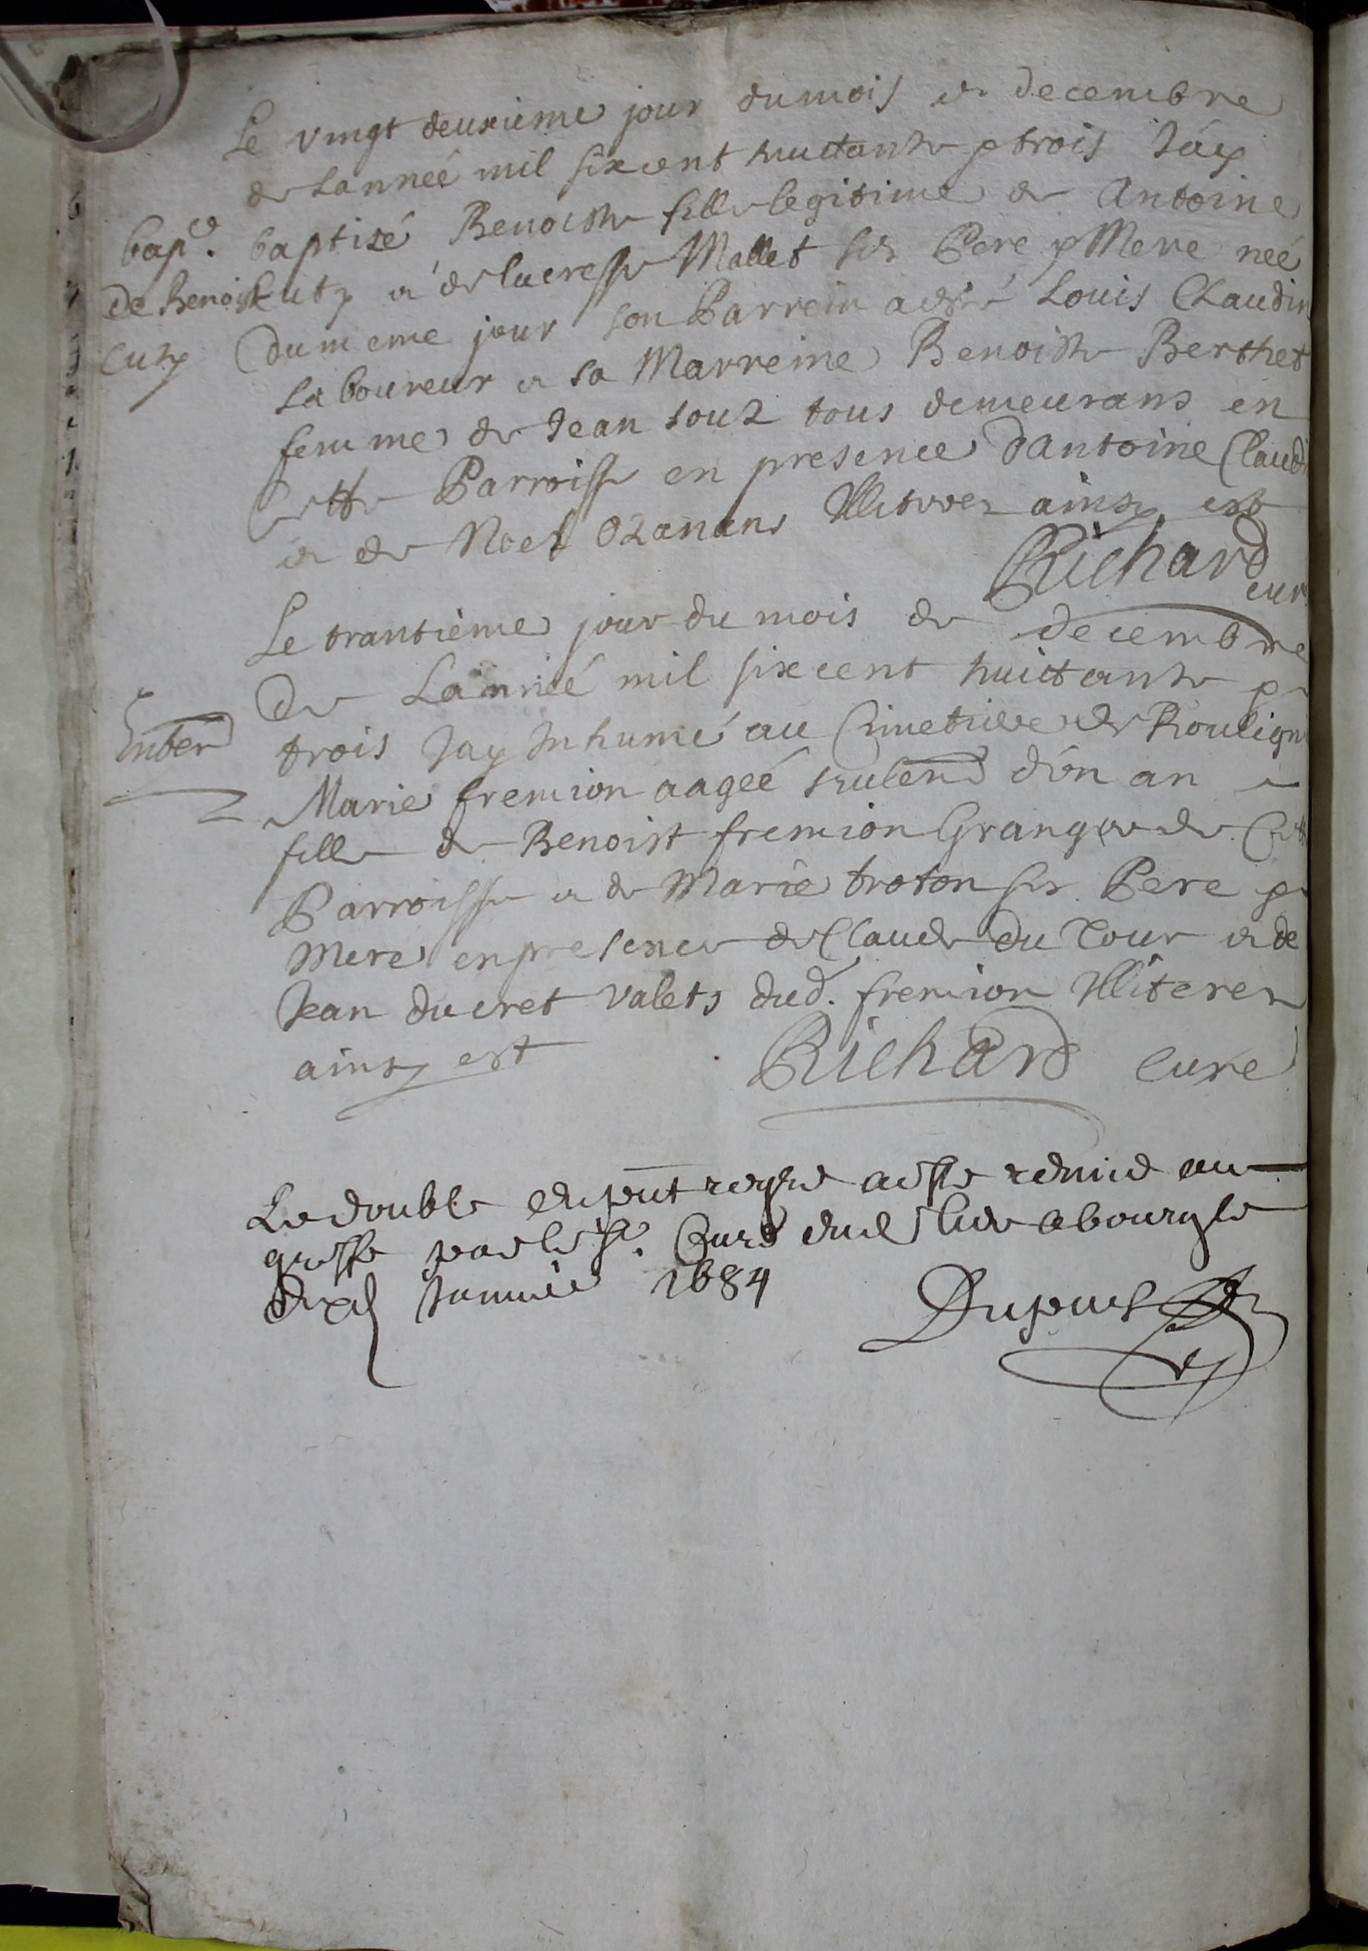 Le vingt deuxieme jour du mois de decembre
de Lanneé mil six cent huictante et trois Jay
bap.d baptizé Benoiste fille legitime de Antoine
de Benoiste cuty et de lucresse Mallet ses Pere et Mere neé
cuty du meme jour son Parrein a esté Louis Claudin
Laboureur et sa Marreine Benoiste Berthet
femme de Jean tous demeurans en
cette Parroisse en presence d'Antoine Claudi
et de Noel Ozanans Illiterez ainsy est
Richard cur
Le trantième jour du mois de decembre
De Lanneé mil six cent huictante et
Enter trois Jay Inhumé au Cimetiere de
Marie fremion aageé seulem d'un an
fille de Benoist fremion Granger de Cett
Parroisse et de Marie troton ses Pere et
Mere en presence de Claude du Tour et de
Jean ducret valets dud. fremion Illiterez
ainsy est Richard Curé
Le double du pnt regre a esté remis au
greffe par le Sr. Curé dud lieu a bourg le
Janvier 1684